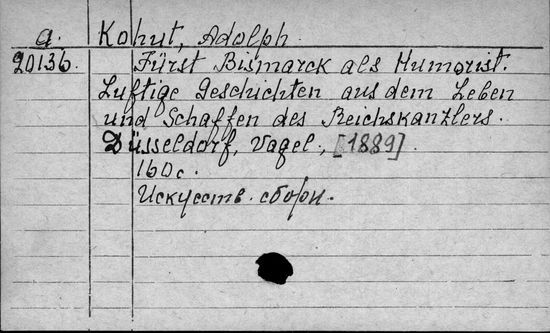 a. Kohut, Adolph.
20136. Fürst Bismarck als Humorist.
Luftige Geschichten aus dem Leben
und Schaffen des Reichskanzlers.
Düsseldorf, Vagel, [1889].
160 с.
Искусств. сборн.